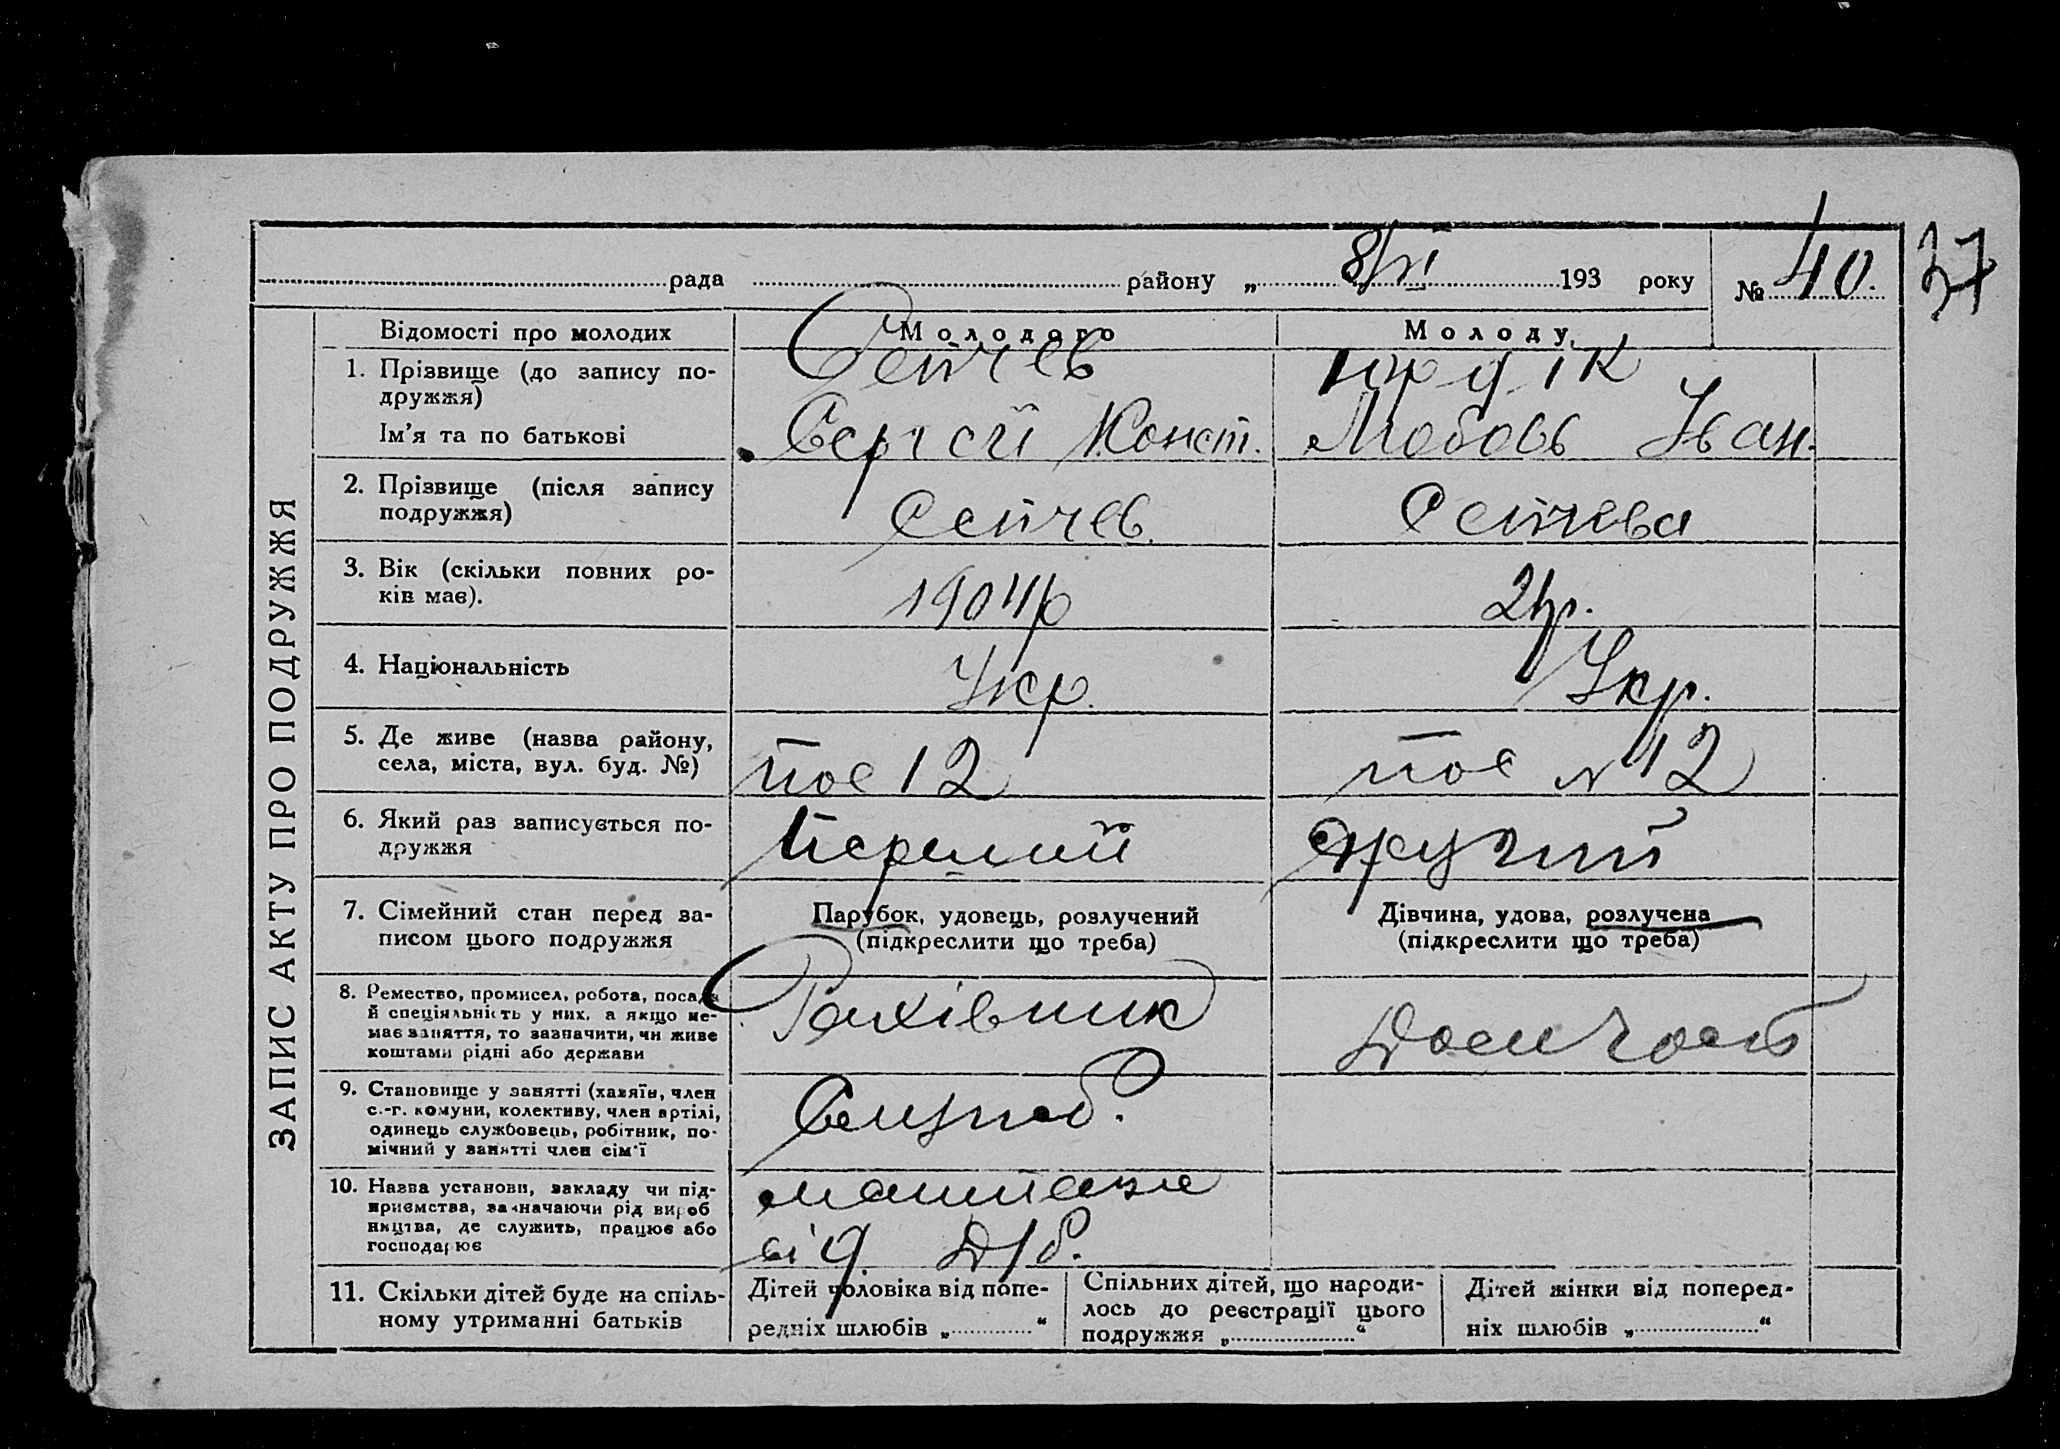 рада района „ 8/VI 193 року № 40.
37
ЗАПИС АКТУ ПРО ПОДРУЖЖЯ
Відомості про молодих Молодого Молоду
1. Прізвище (до запису по-
дружжя)
Сейчев Юрдік
Ім'я та по батькові Сергєй Конст. Любовь Іван.
2. Прізвище (після запису
подружжя)
Сейчев. Сейчева
3. Вік (скільки повних ро-
ків має).
1904р
4. Національність Укр. Укр.
5. Де живе (назва району,
села, міста, вул. буд. №)
пос 12 пос N 12
6. Який раз записується по-
дружжя
Перший Другий
7. Сімейний стан перед за-
писом цього подружжя
Парубок, удовець, розлучений
(підкреслити що треба)
Дівчина, удова, розлучена
(підкреслити що треба)
8. Ремество, промисел, робота, посада
й спеціяльність у них, а якщо не-
має заняття, то зазначити, чи живе
коштами рідні або держави
Рахівник Домгосп
9. Становище у занятті (хазяїн, член
с.-г. комуни, колективу, член артілі,
одинець службовець, робітник, по-
мічний у занятті член сім'ї
Служб.
10. Назва установи, закладу чи під-
приємства, зазначаючи рід вироб
ництва, де служить, працює або
господарює
від.
11. Скільки дітей буде на спіль-
ному утриманні батьків
Дітей чоловіка від попе-
редніх шлюбів „ “
Спільних дітей, що народи-
лось до реєстрації цього
подружжя „ “
Дітей жінки від поперед-
ніх шлюбів „ “